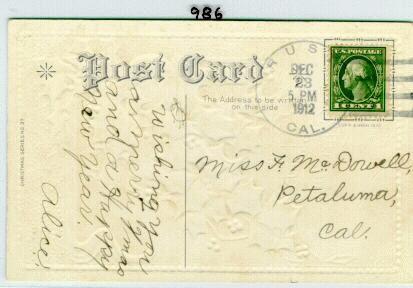 986
Post Card
The Address to be written
on this side
CHRISTMAS SERIES NO.
RUS
DEC
23
5 PM
1912
CAL.
1 CENT 1
Wishing you
a merry Xmas
and a Happy
New Year.
Alice.
Miss F. McDowell,
Petaluma,
Cal.